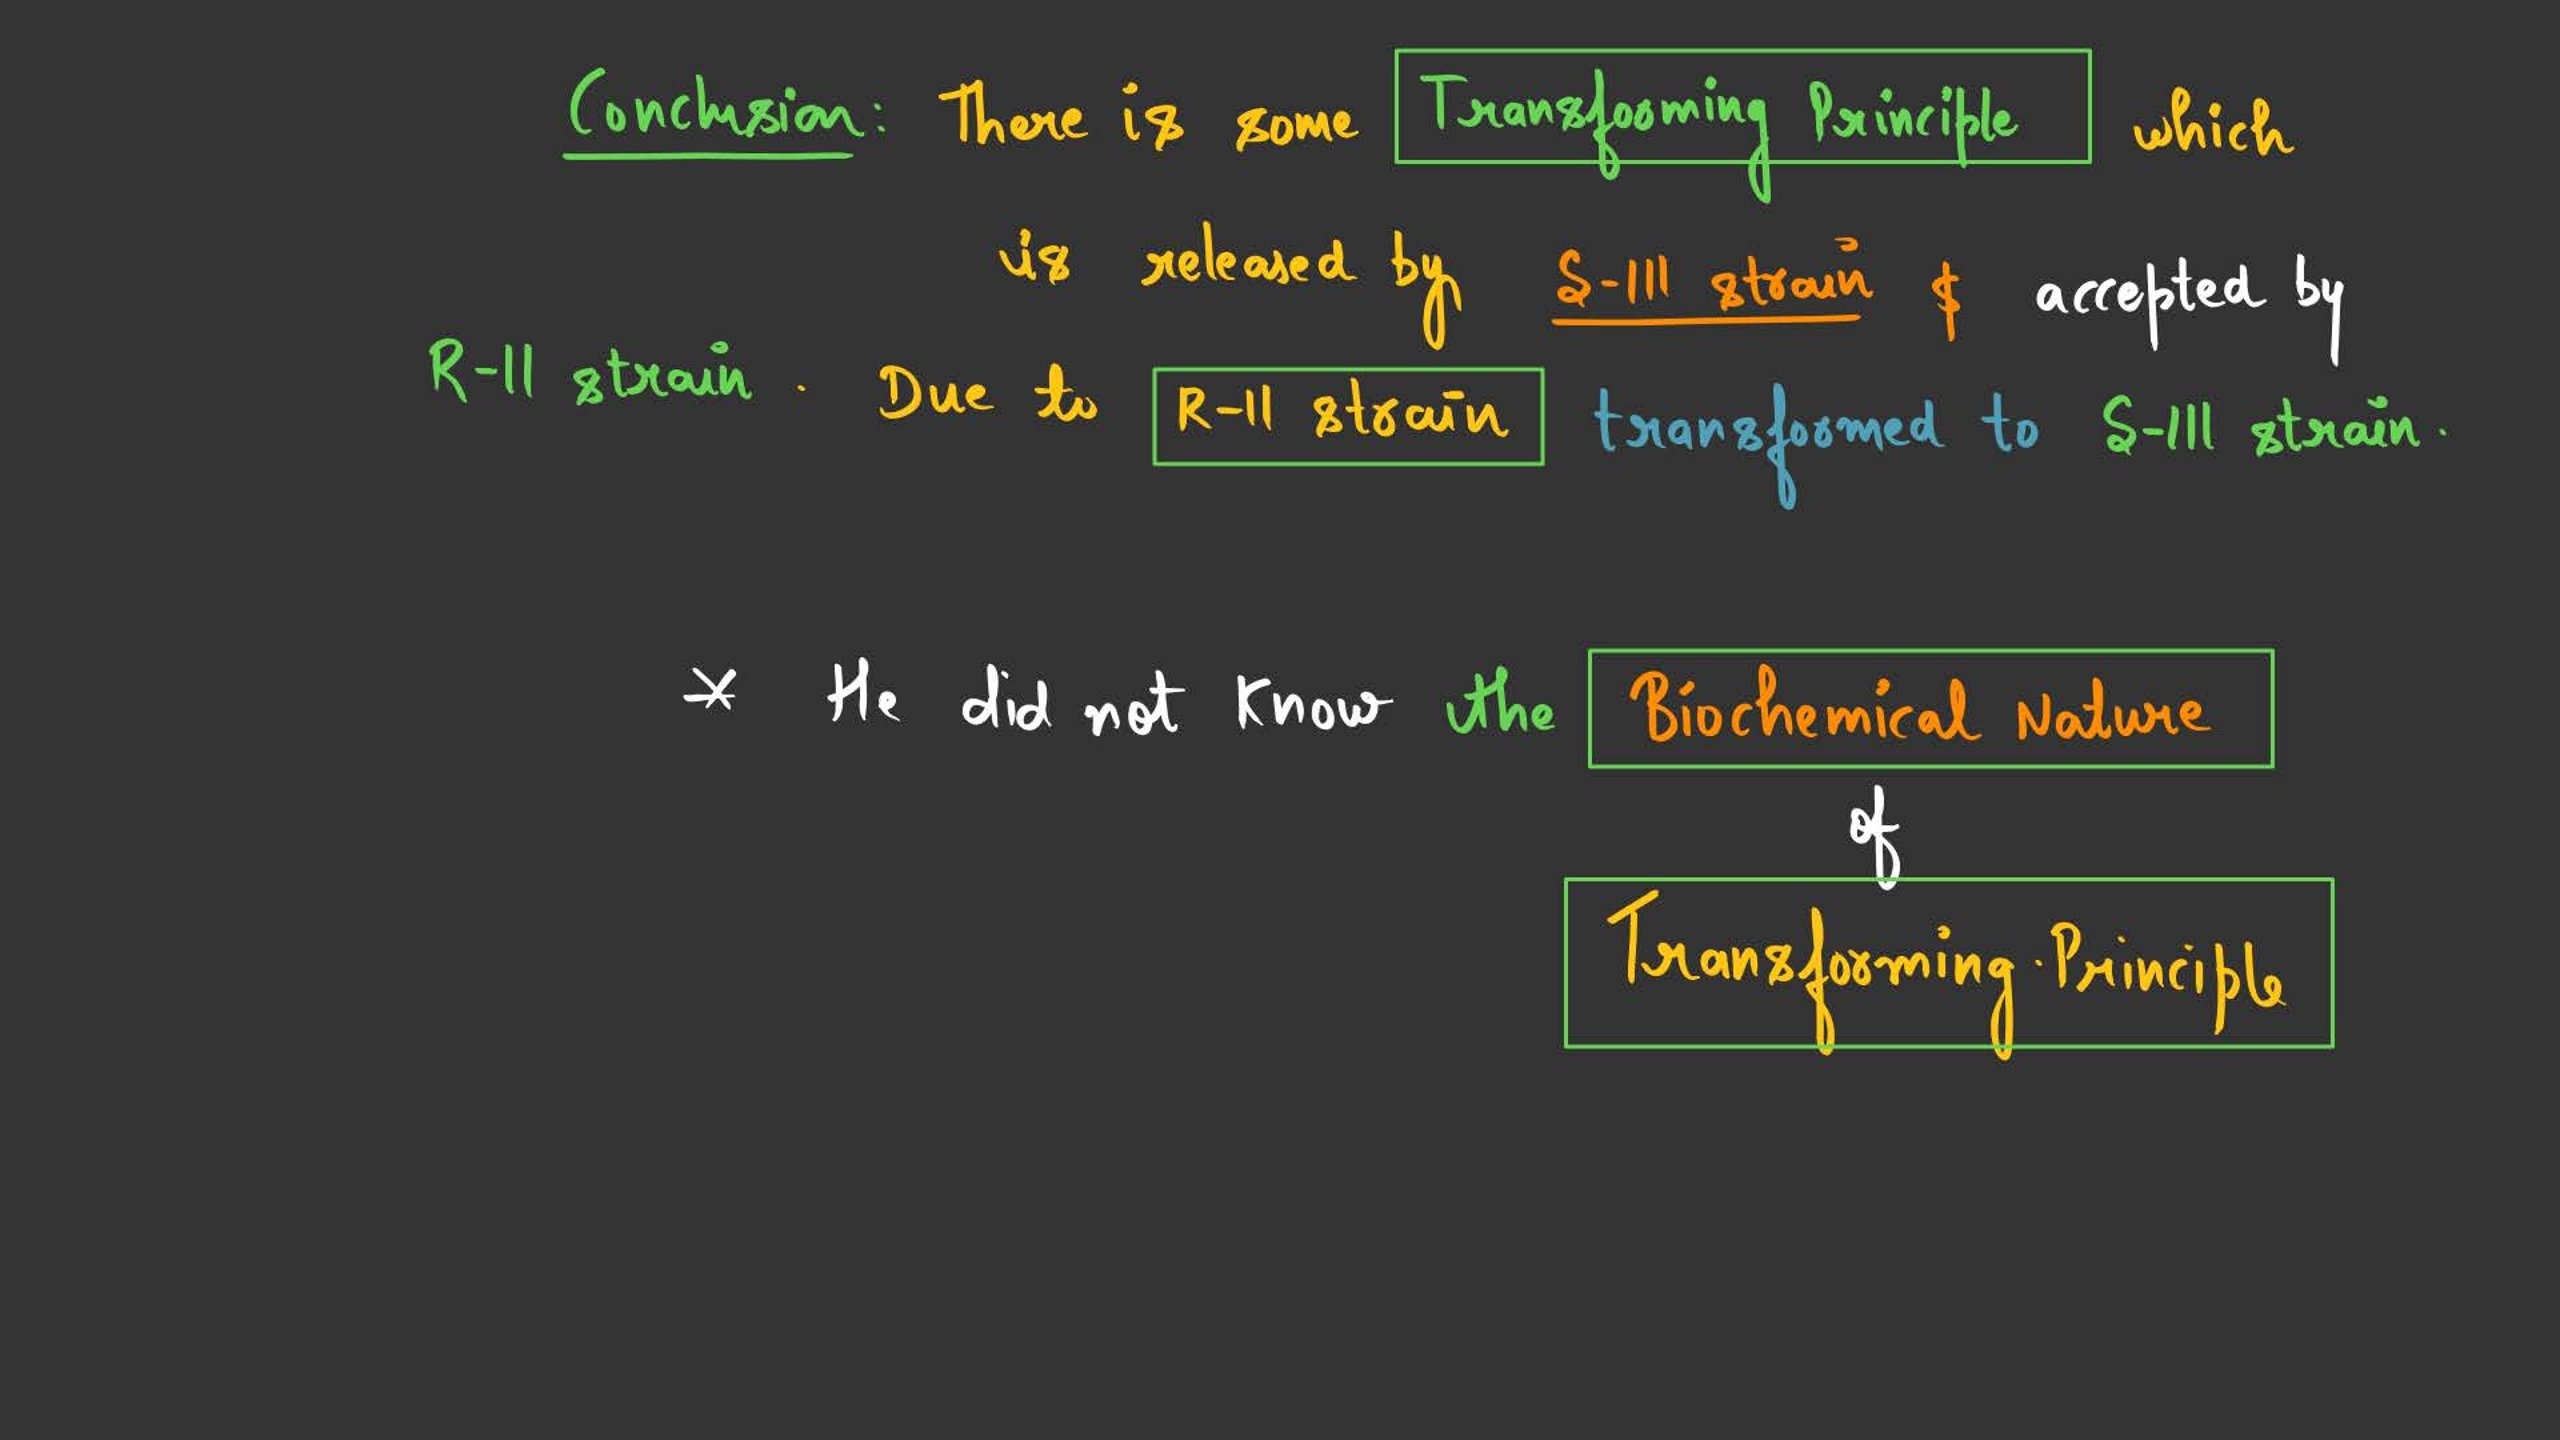 Conclusion: There is some Transforming Principle which
is released by S-III strain & accepted by
R-II strain. Due to R-II strain transformed to S-III strain.
* He did not know the Biochemical Nature
of
Transforming Principle